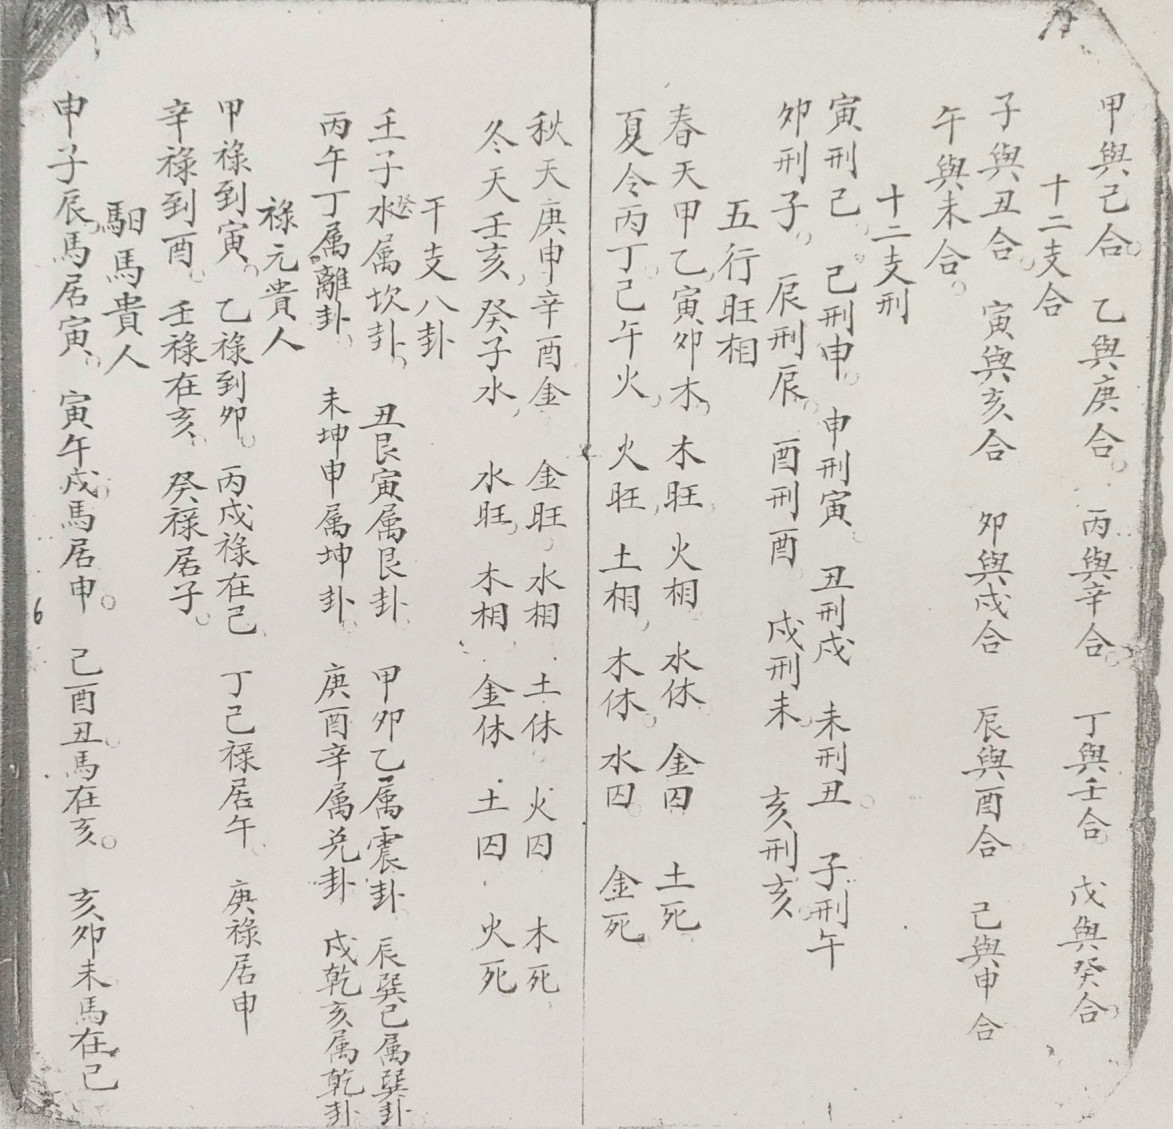 甲與己合。乙與庚合。丙與辛合。丁與壬合。戊與癸合。
十二支合
子與丑合。寅與亥合 卯與戌合 辰與酉合 己與申合
午與未合。
十二支刑
寅刑己。己刑申。申刑寅。丑刑戌 未刑丑。子刑午
卯刑子。辰刑辰。酉刑酉 戌刑未 亥刑亥
五行旺相
春天甲乙寅卯木。木旺 火相 水休 金囚 土死
夏令丙丁己午火。火旺 土相 木休。水囚 金死
秋天庚申辛酉金 金旺 水相 土休 火囚 木死
冬天壬亥癸子水 水旺 木相 金休 土囚 火死
干支八卦
壬子癸水属坎卦。丑艮寅属艮卦 甲卯乙属震卦 辰巽巳属巽卦
丙午丁属離卦。未坤申属坤卦 庚酉辛属兑卦 戌乾亥属乾卦
祿元貴人
甲祿到寅。乙祿到卯。丙戊祿在己 丁己祿居午 庚祿居申
辛祿到酉。壬祿在亥 癸祿居子。
馹馬貴人
申子辰馬居寅。寅午戌馬居申。己酉丑馬在亥。亥卯未馬在己
6